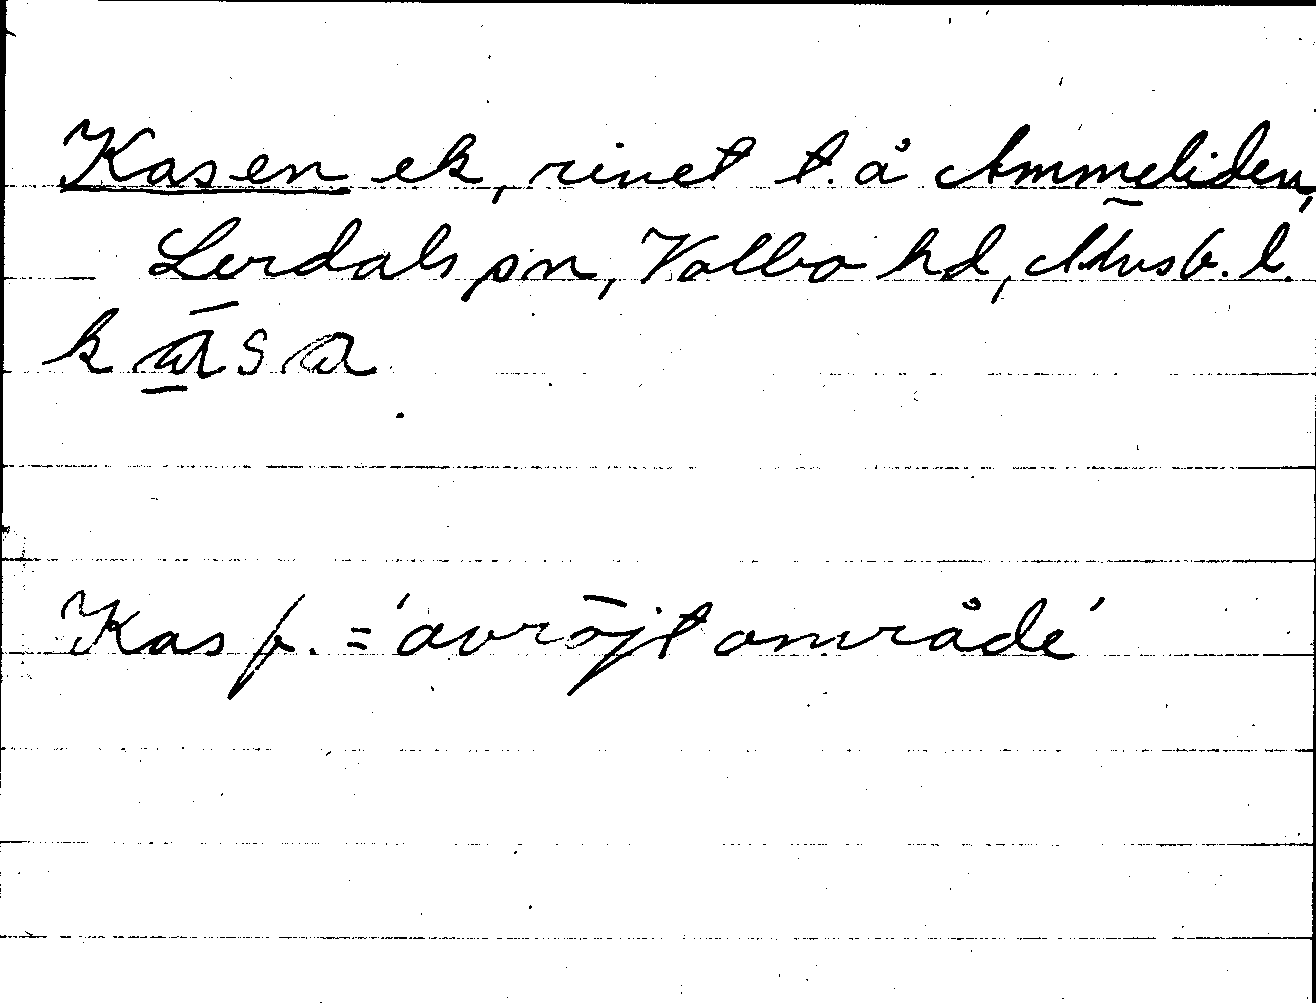 Kasen ek, rivet t. å Ammeliden,
Lerdals sn, Valbo hd, Älvsb. l.
Kas f. = 'avröjt område'